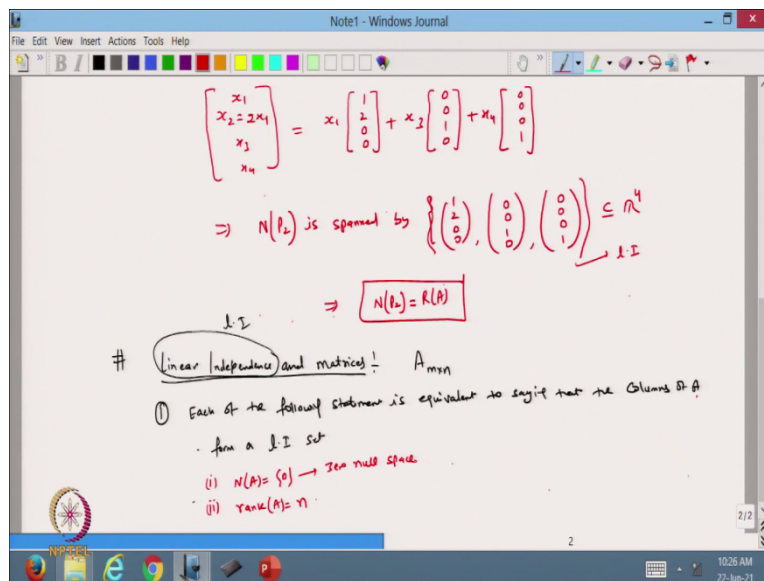 Note1 - Windows Journal
File Edit View Insert Actions Tools Help
B I
[x1, x2 = 2x1, x3, x4] = x1 [1, 2, 0, 0] + x3 [0, 0, 1, 0] + x4 [0, 0, 0, 1]
⇒ N(P2) is spanned by {(1, 2, 0, 0), (0, 0, 1, 0), (0, 0, 0, 1)} ⊆ R^4
l.I
⇒ N(P2) = R(A)
l.I
# Linear Independence and matrices :- A_{m×n}
① Each of the following statement is equivalent to saying that the columns of A
form a l.I set
(i) N(A) = {0} → Zero null space
(ii) rank(A) = n
NPTEL
2
2/2
10:26 AM
22-Jun-21